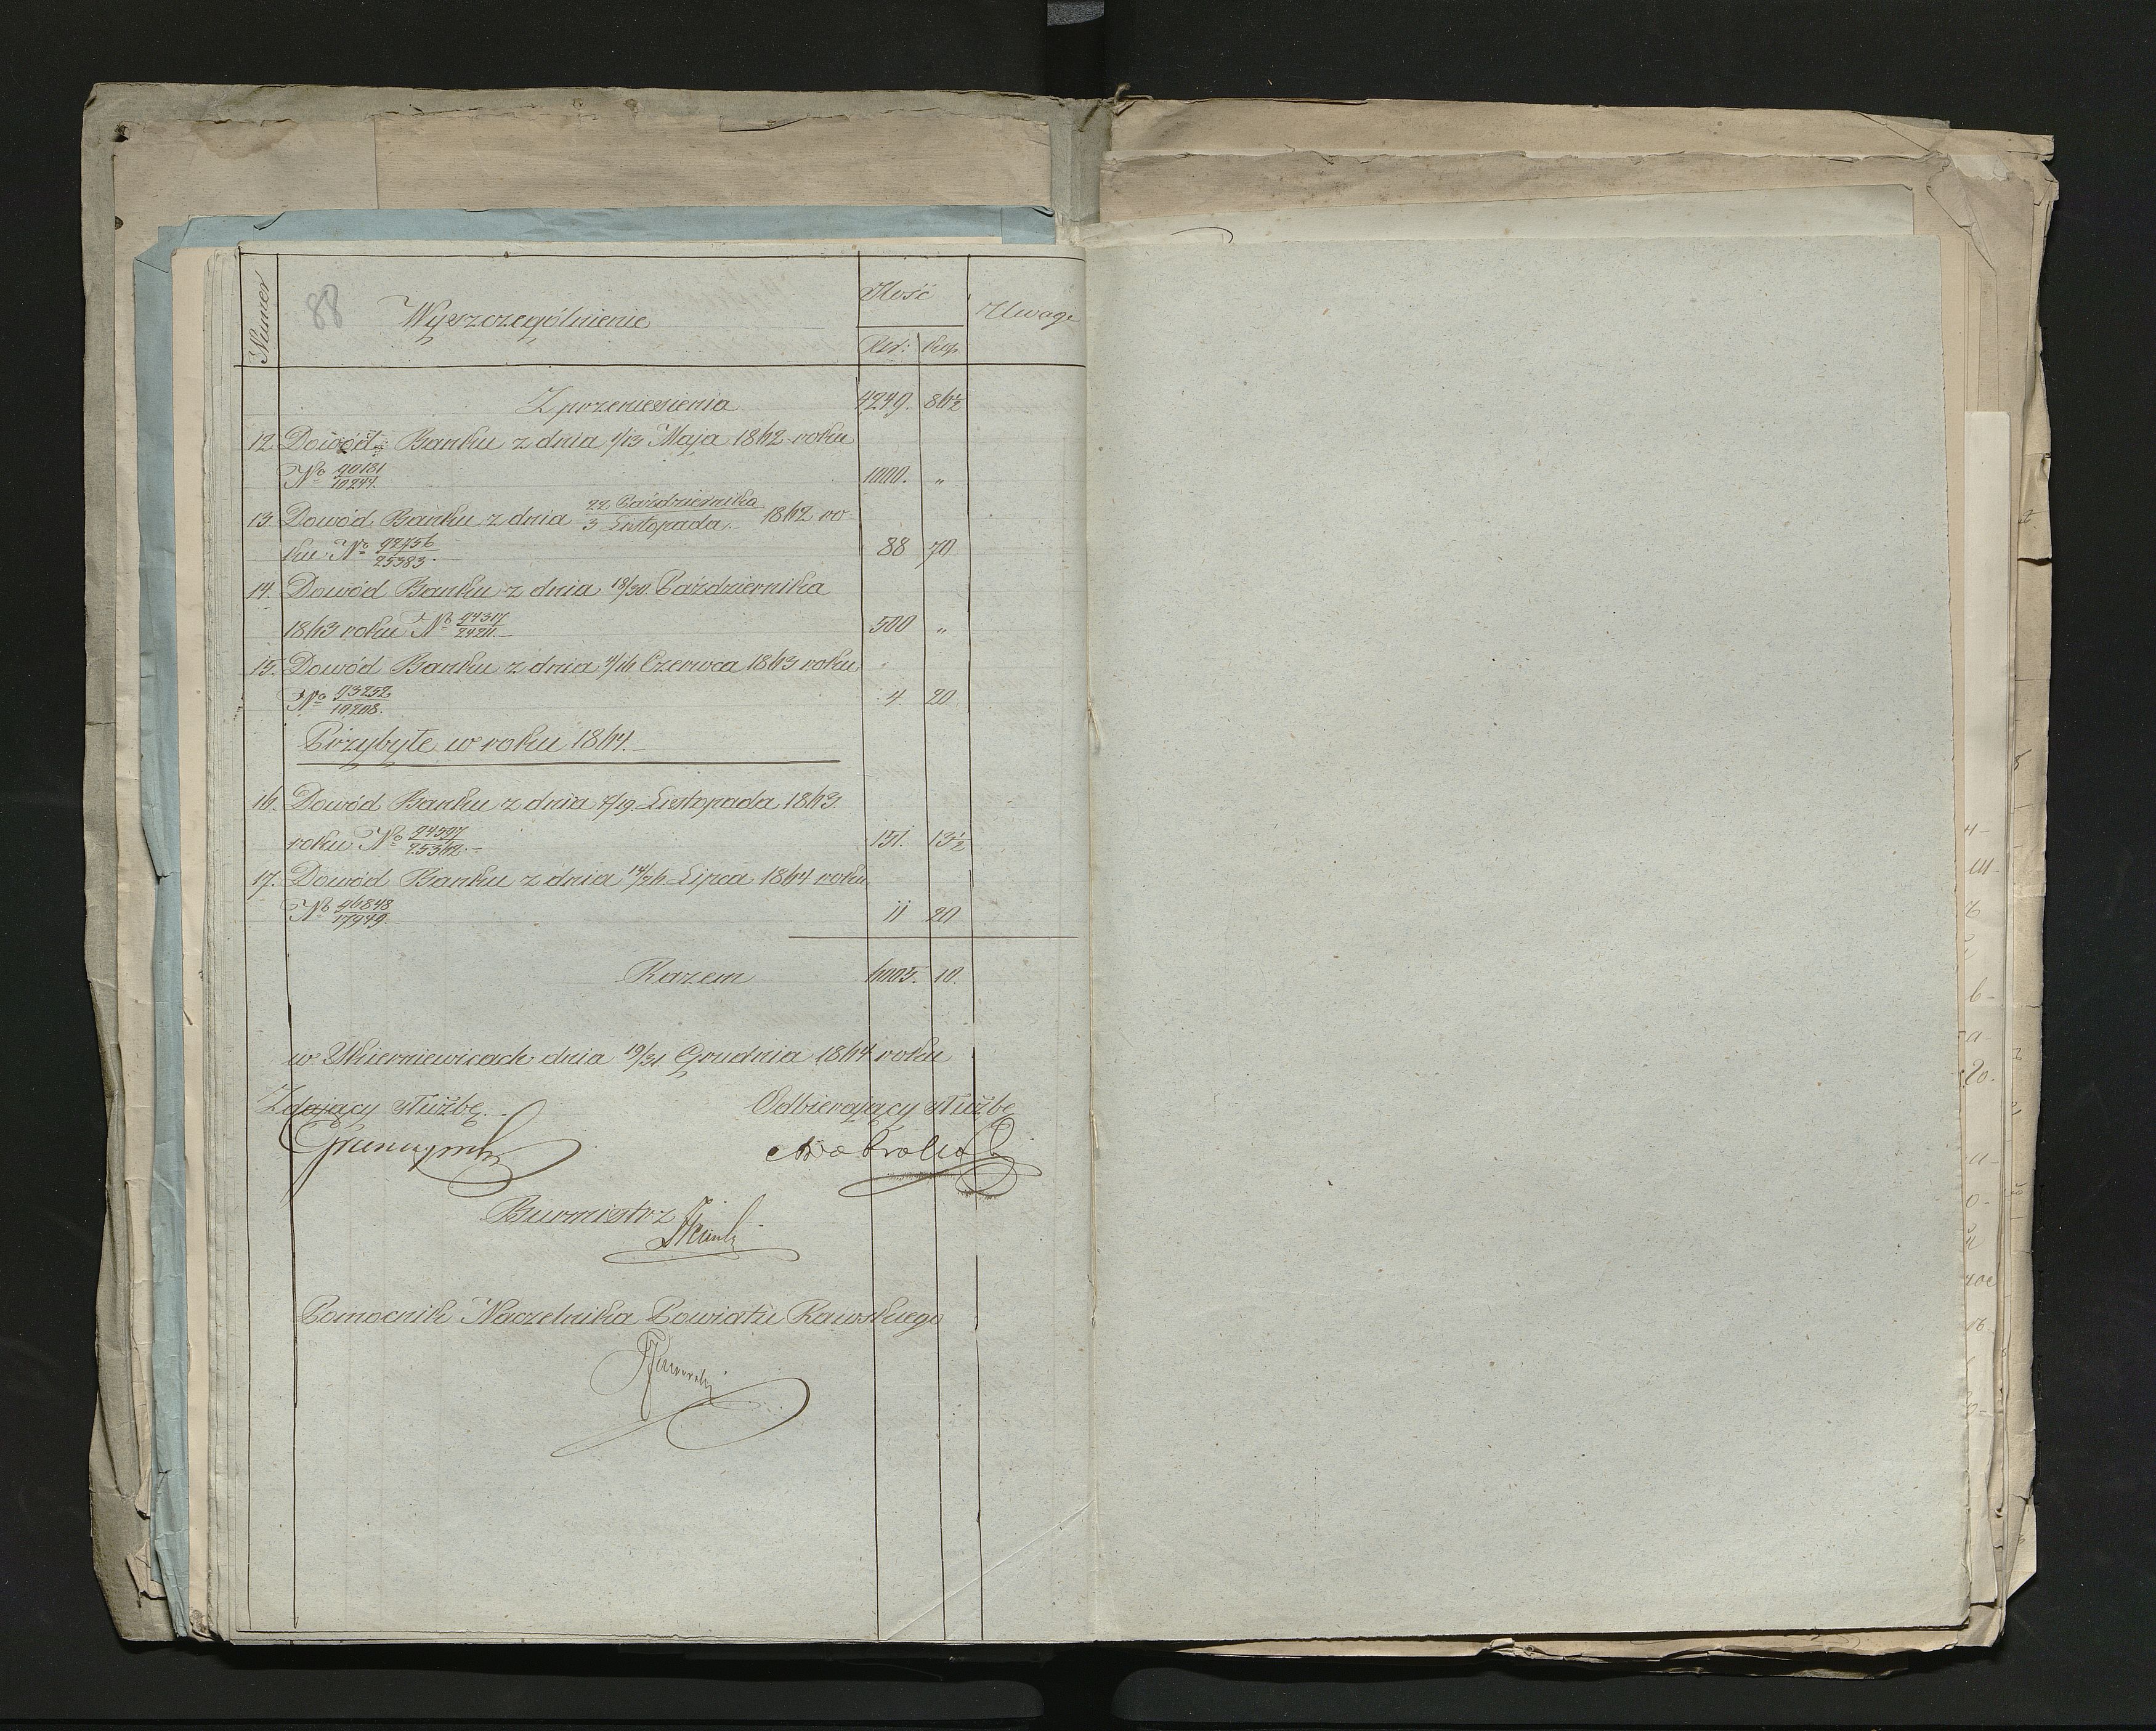 88
Numer Wyszczególnienie Ilość Uwagi
Rsr: Kop.
Z przeniesienia 4249. 86½
12. Dowód Banku z dnia 1/13 Maja 1862 roku
No 90181/10244. 1000. „
13. Dowód Banku z dnia 22 Października/3 Listopada 1862 ro
ku No 92756/25383. 88 70
14. Dowód Banku z dnia 18/30 Października
1863 roku No 94317/24211. 500 „
15. Dowód Banku z dnia 4/16 Czerwca 1863 roku
No 93252/10208. 4 20
Przybyłe w roku 1864.
16. Dowód Banku z dnia 7/19 Listopada 1863.
roku No 94397/25362. 151. 13½
17. Dowód Banku z dnia 14/26 Lipca 1864 roku
No 96848/17949. 11 20
Razem 6005. 10.
w Skierniewicach dnia 19/31 Grudnia 1864 roku
Zdający służbę. Odbierający służbę
Burmistrz
Pomocnik Naczelnika Powiatu Rawskiego